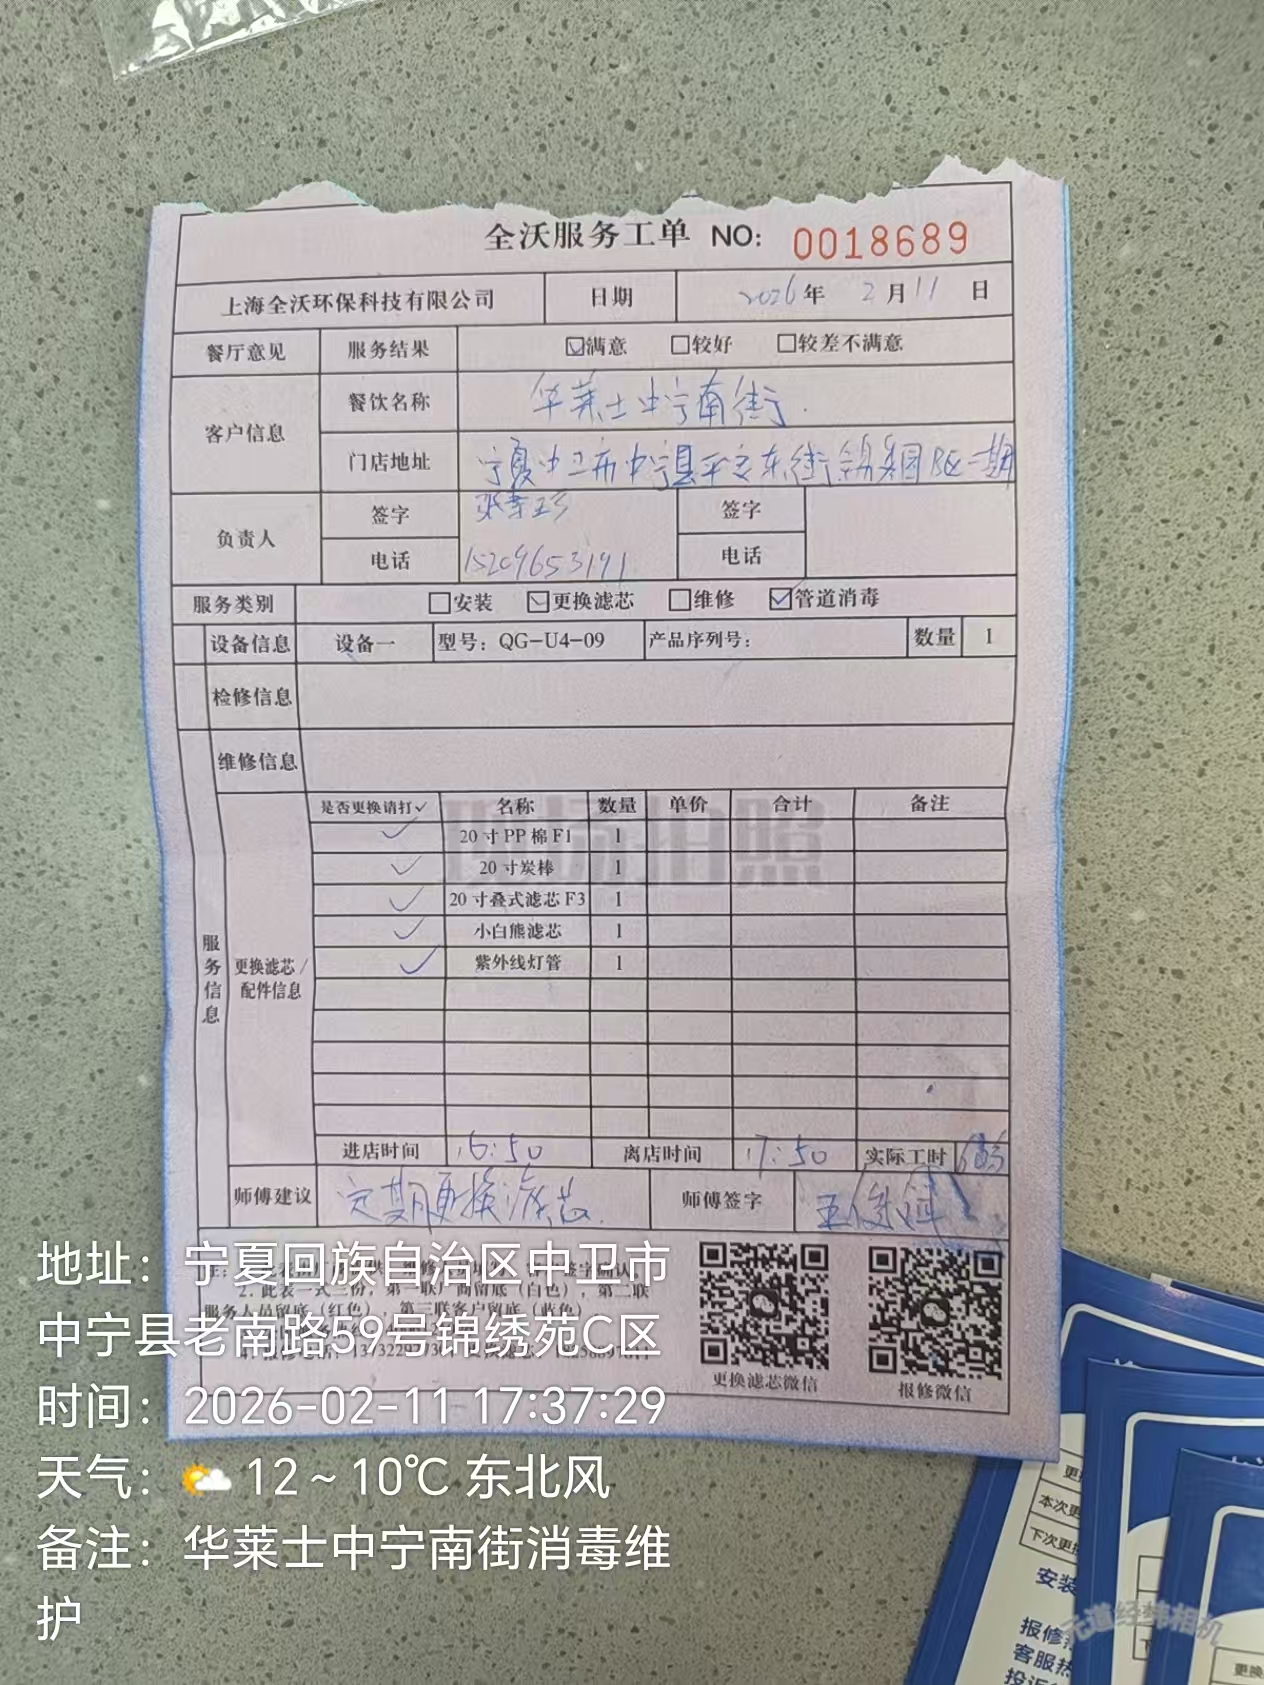 全沃服务工单 NO: 0018689
上海全沃环保科技有限公司 日期 2026年 2月11 日
餐厅意见 服务结果 ☑满意 □较好 □较差不满意
客户信息 餐饮名称 华莱士中宁南街
门店地址 宁夏中卫市中宁县平安东街锦绣园B区一期
负责人 签字 签字
电话 15209653191 电话
服务类别 □安装 ☑更换滤芯 □维修 ☑管道消毒
设备信息 设备一 型号：QG-U4-09 产品序列号： 数量 1
检修信息
维修信息
服务信息
更换滤芯/配件信息
是否更换请打✓ 名称 数量 单价 合计 备注
✓ 20寸PP棉F1 1
✓ 20寸炭棒 1
✓ 20寸叠式滤芯F3 1
✓ 小白熊滤芯 1
✓ 紫外线灯管 1
现场拍照
进店时间 16:50 离店时间 17:50 实际工时
师傅建议 定期更换滤芯 师傅签字
2. 此表一式三份，第一联厂商留底（白色），第二联
服务人员留底（红色），第三联客户留底（蓝色）
更换滤芯微信 报修微信
地址：宁夏回族自治区中卫市
中宁县老南路59号锦绣苑C区
时间：2026-02-11 17:37:29
天气：12～10℃ 东北风
备注：华莱士中宁南街消毒维
护
本次更
下次更
安装
报修
客服热
投诉
元道经纬相机